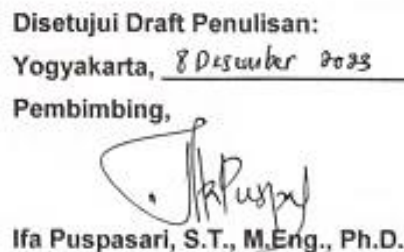 Disetujui Draft Penulisan:
Yogyakarta, 8 Desember 2023
Pembimbing,
Ifa Puspasari, S.T., M.Eng., Ph.D.